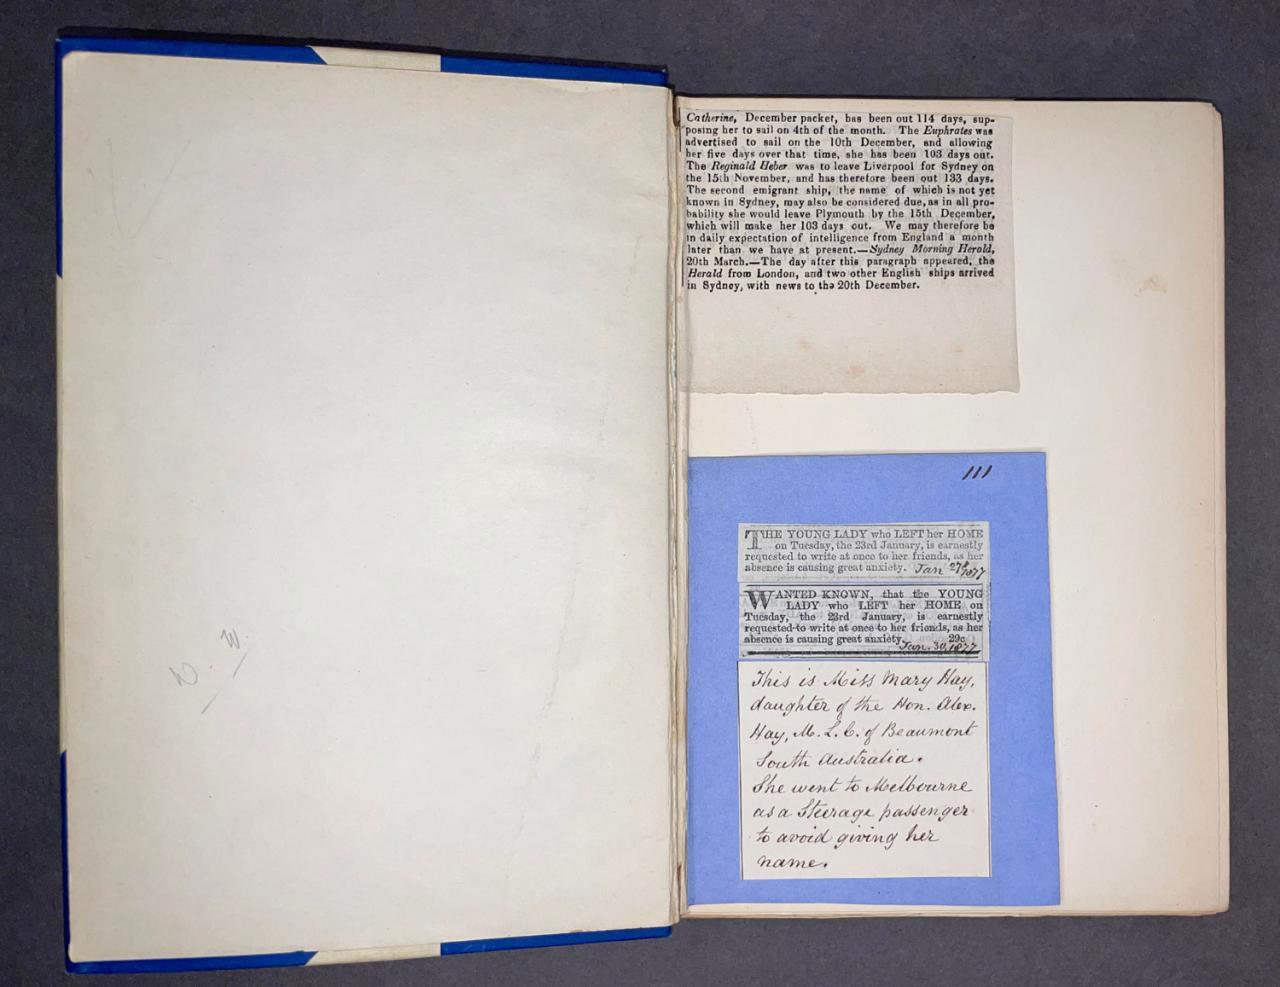 Catherine, December packet, has been out 114 days, sup-
posing her to sail on 4th of the month. The Euphrates was
advertised to sail on the 10th December, and allowing
her five days over that time, she has been 103 days out.
The Reginald Heber was to leave Liverpool for Sydney on
the 15th November, and has therefore been out 133 days.
The second emigrant ship, the name of which is not yet
known in Sydney, may also be considered due, as in all pro-
bability she would leave Plymouth by the 15th December,
which will make her 103 days out. We may therefore be
in daily expectation of intelligence from England a month
later than we have at present.—Sydney Morning Herald,
20th March.—The day after this paragraph appeared, the
Herald from London, and two other English ships arrived
in Sydney, with news to the 20th December.
111
THE YOUNG LADY who LEFT her HOME
on Tuesday, the 23rd January, is earnestly
requested to write at once to her friends, as her
absence is causing great anxiety. Jan 27th 1877
WANTED KNOWN, that the YOUNG
LADY who LEFT her HOME on
Tuesday, the 23rd January, is earnestly
requested to write at once to her friends, as her
absence is causing great anxiety. 29c
Jan. 30, 1877
This is Miss Mary Hay,
daughter of the Hon. Alex.
Hay, M. L. C. of Beaumont
South Australia.
She went to Melbourne
as a Steerage passenger
to avoid giving her
name.